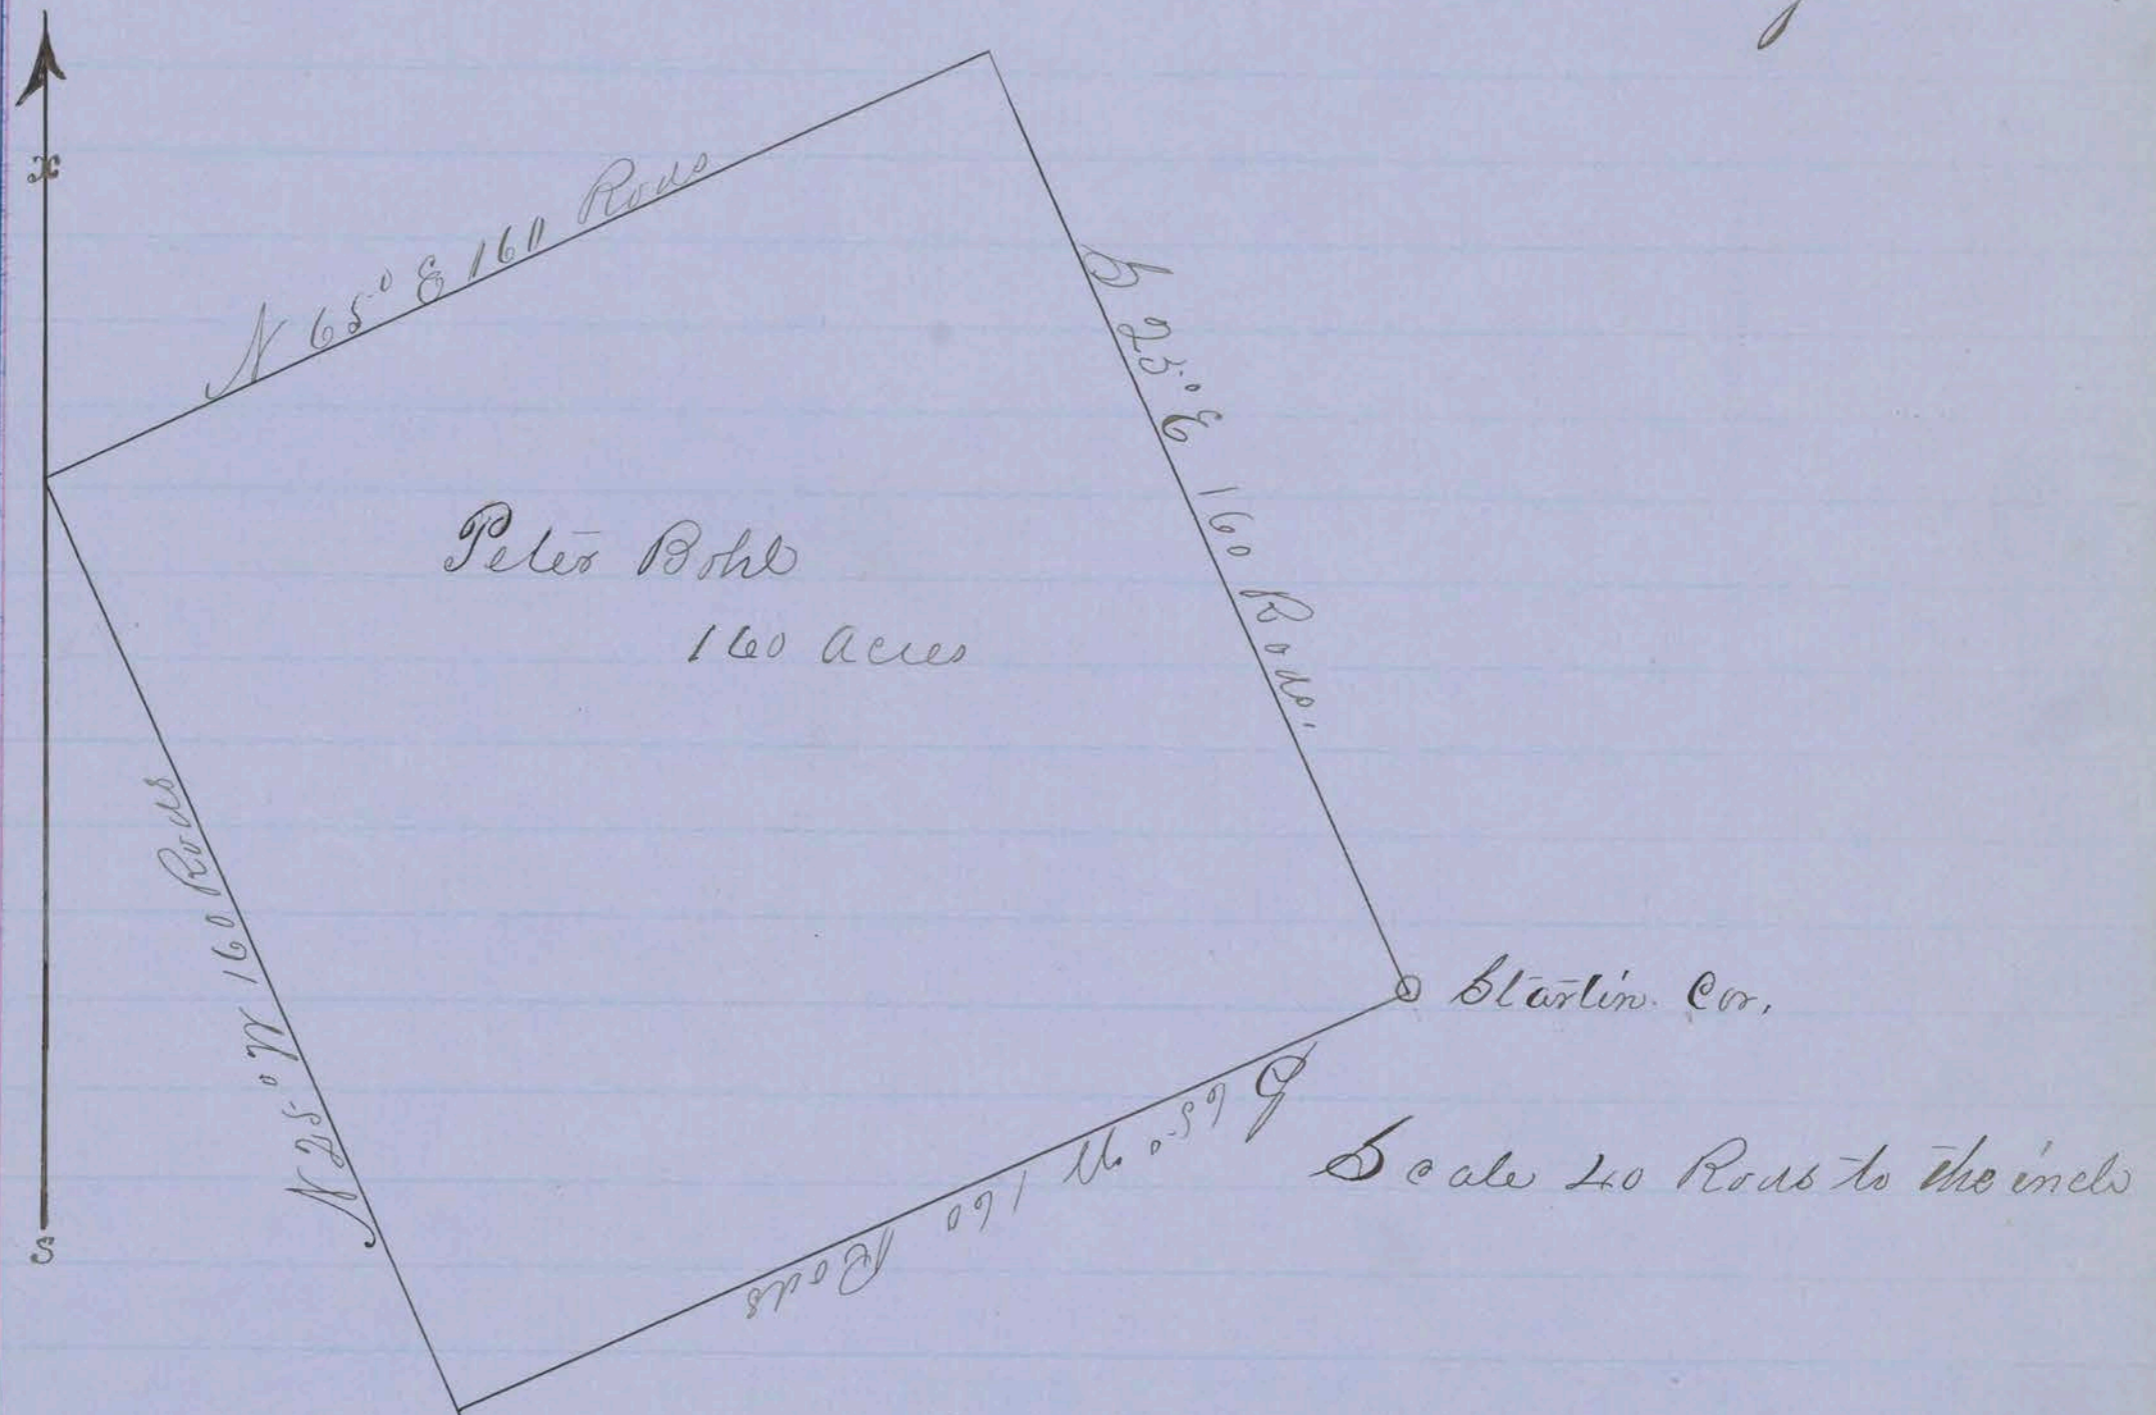 N 65° E 160 Rods
S 25° E 160 Rods.
Peter Bohl
160 acres
N 25° W 160 Rods
Startin. Cor.
S 65° W. 160 Rods
Scale 40 Rods to the inch
S